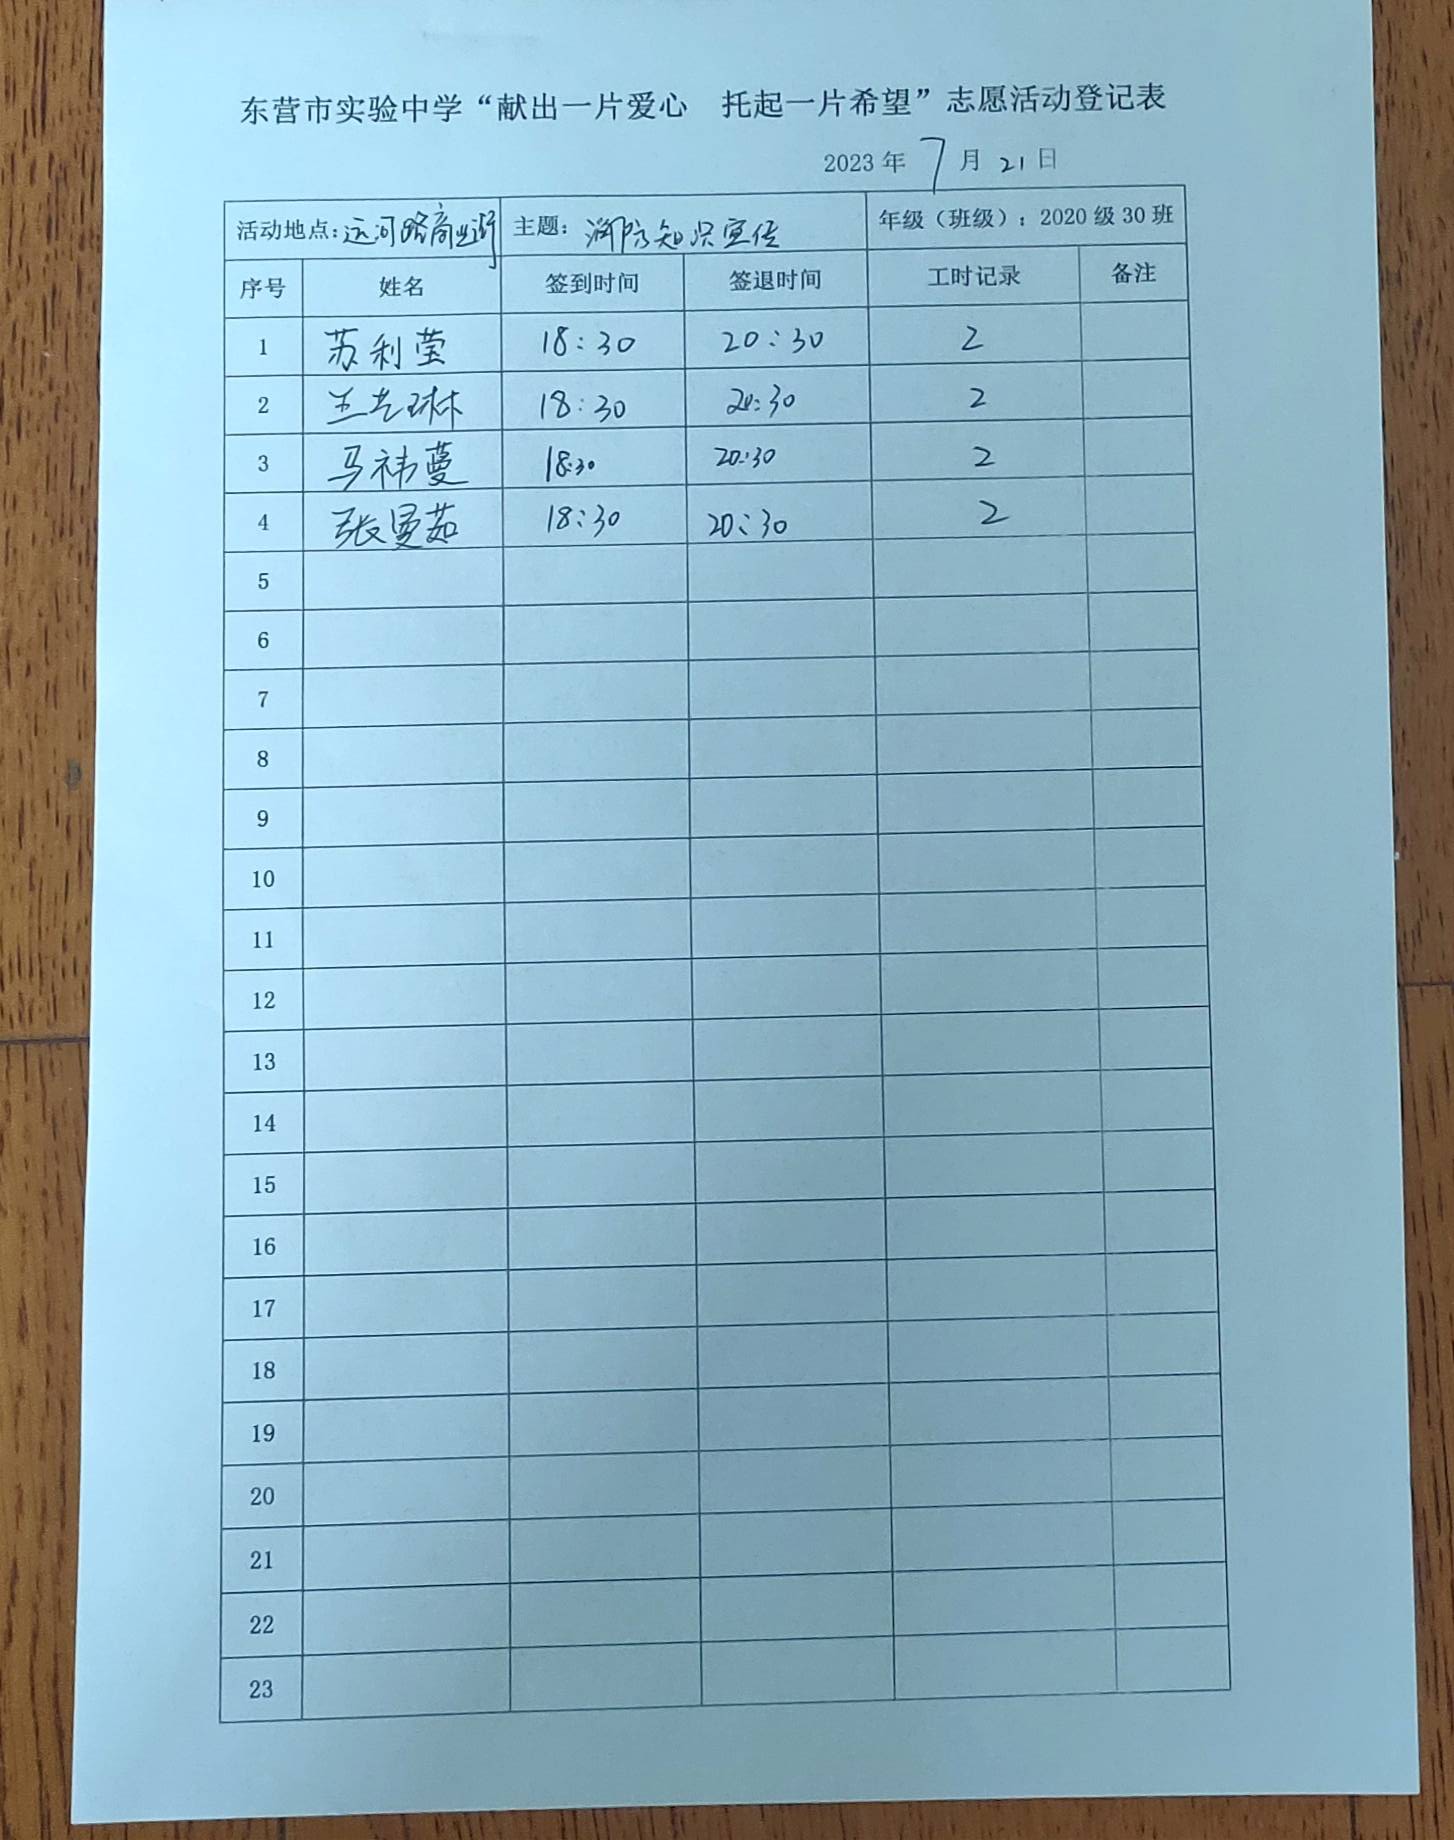 东营市实验中学“献出一片爱心 托起一片希望”志愿活动登记表
2023年 7 月 21 日
活动地点：运河路商业街 主题：消防知识宣传 年级（班级）：2020级30班
序号 姓名 签到时间 签退时间 工时记录 备注
1 苏利莹 18:30 20:30 2
2 兰艺琳 18:30 20:30 2
3 马祎蔓 18:30 20:30 2
4 张曼茹 18:30 20:30 2
5
6
7
8
9
10
11
12
13
14
15
16
17
18
19
20
21
22
23